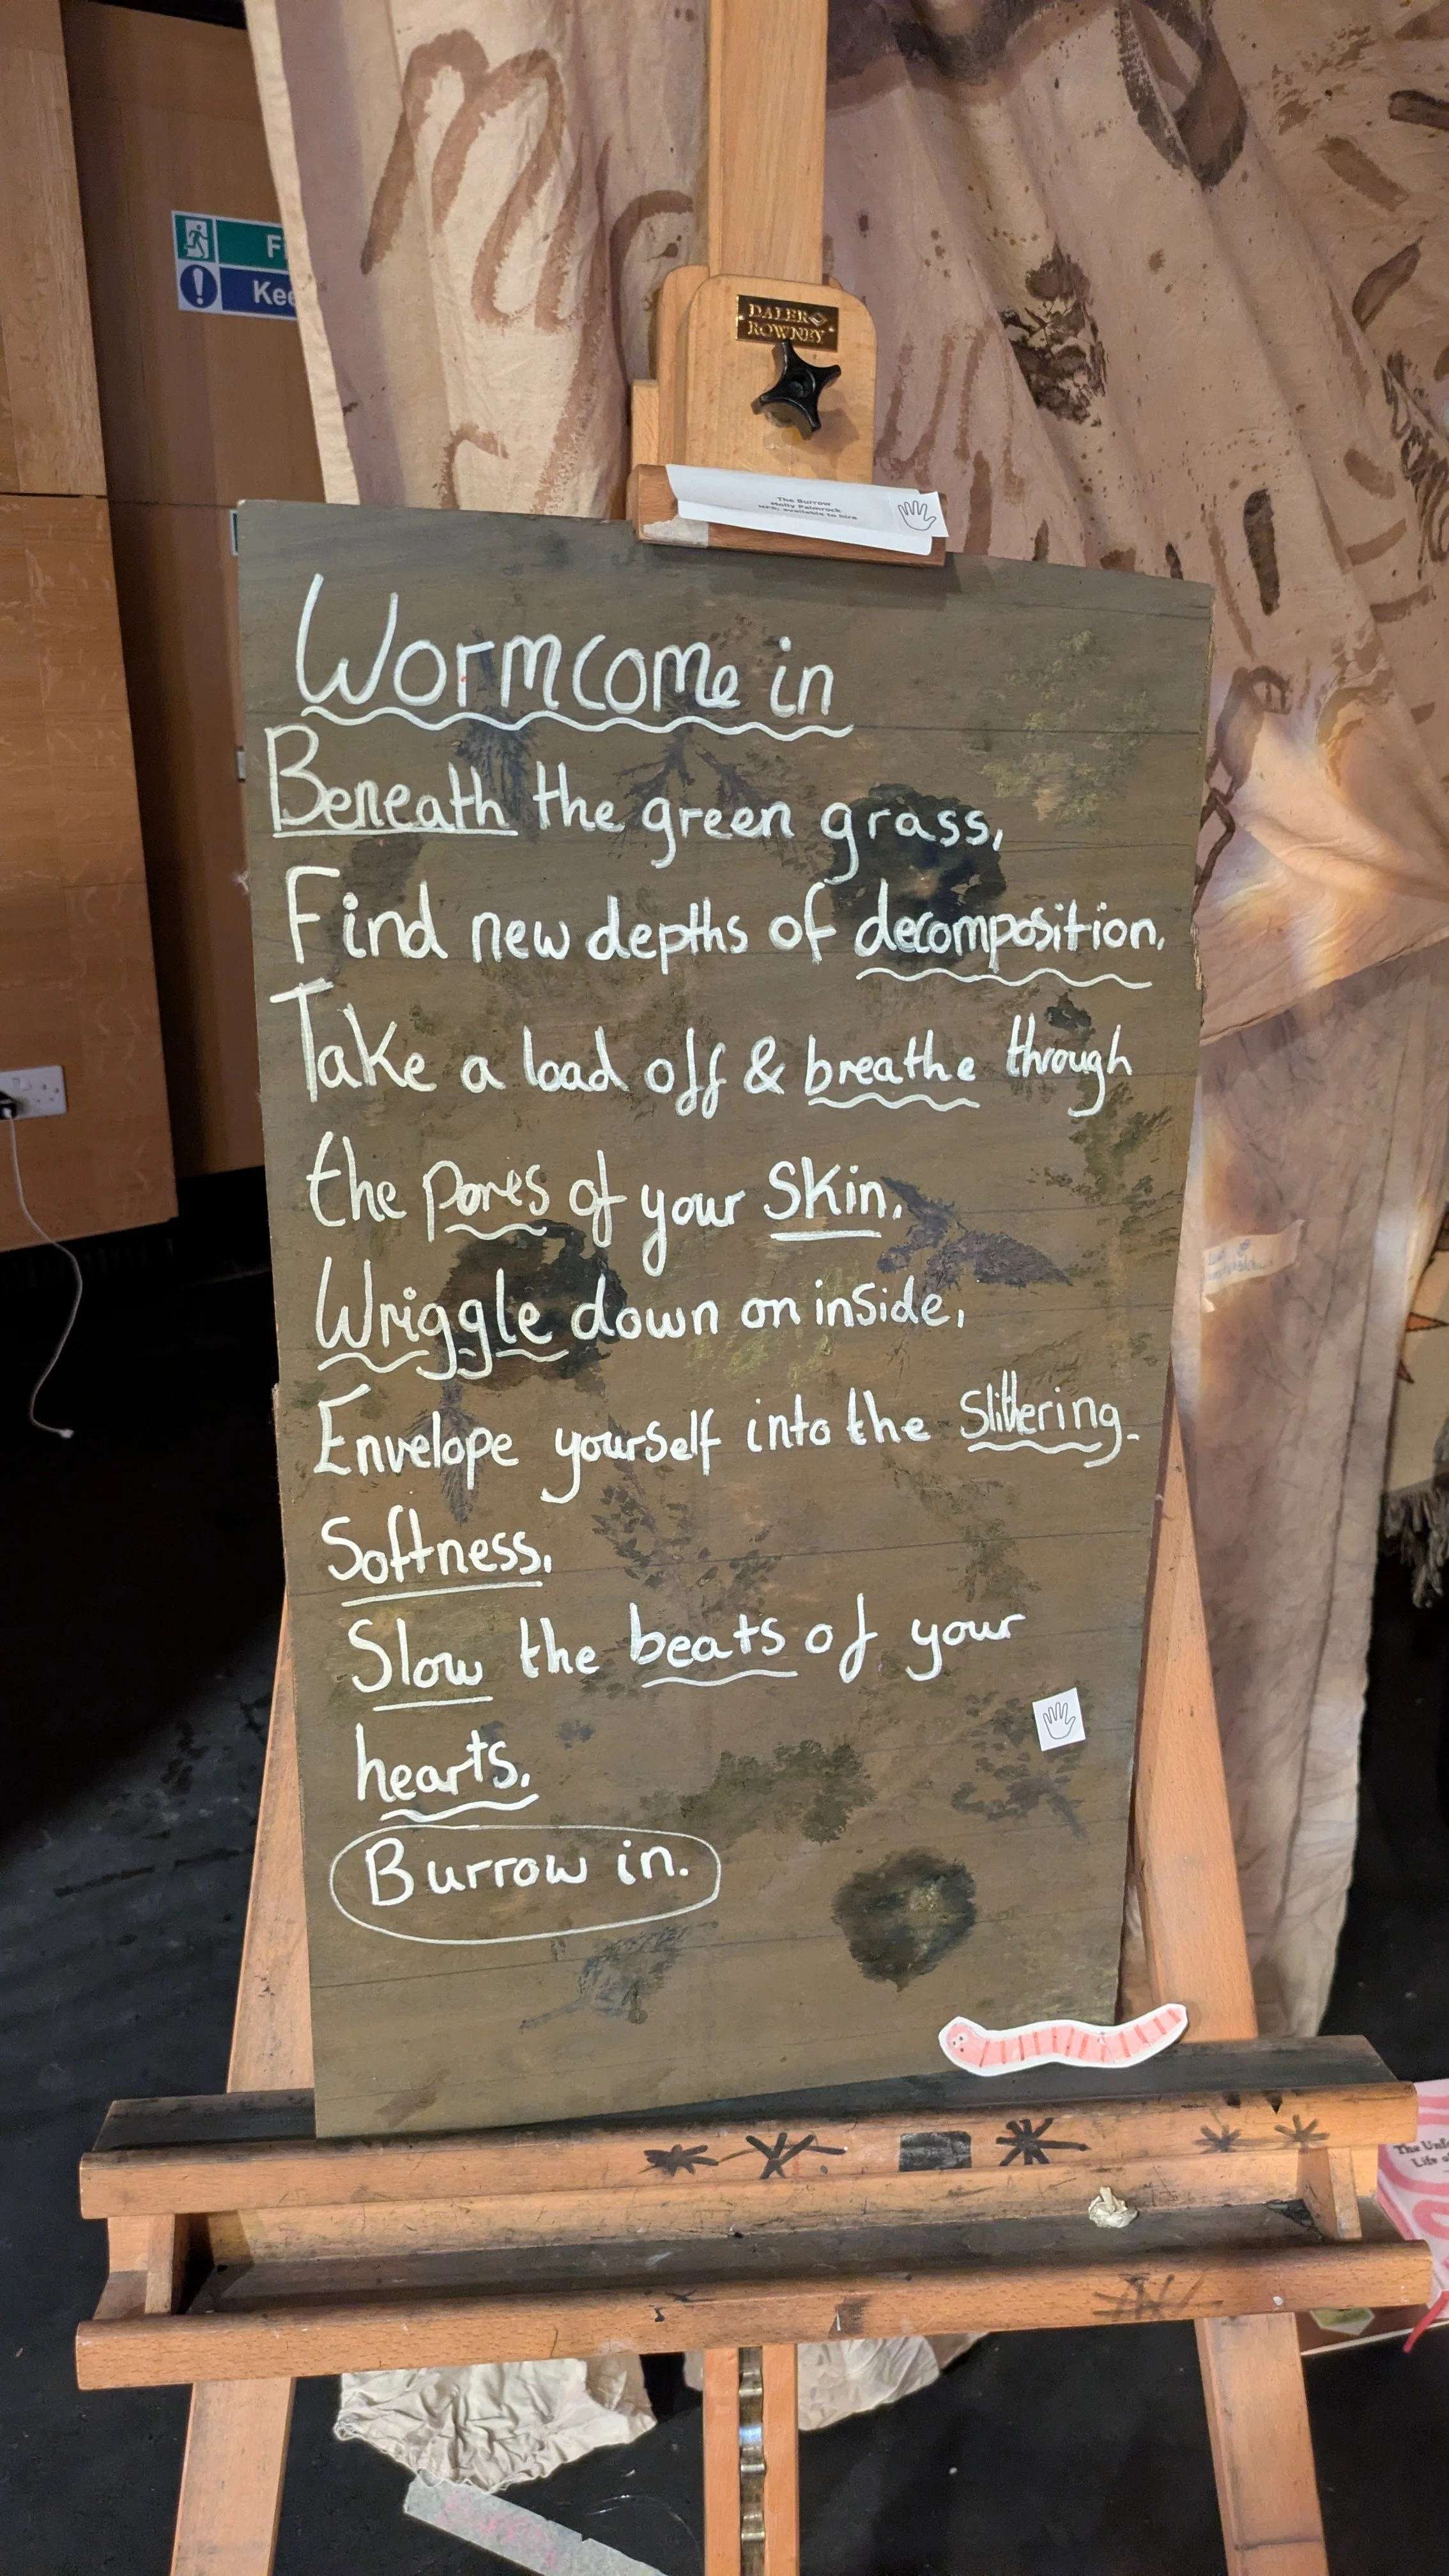 DALER
ROWNEY
The Burrow
Molly Palmrock
NFS, available to hire
Wormcome in
Beneath the green grass,
Find new depths of decomposition,
Take a load off & breathe through
the pores of your skin,
Wriggle down on inside,
Envelope yourself into the Slithering
Softness,
Slow the beats of your
hearts,
Burrow in.